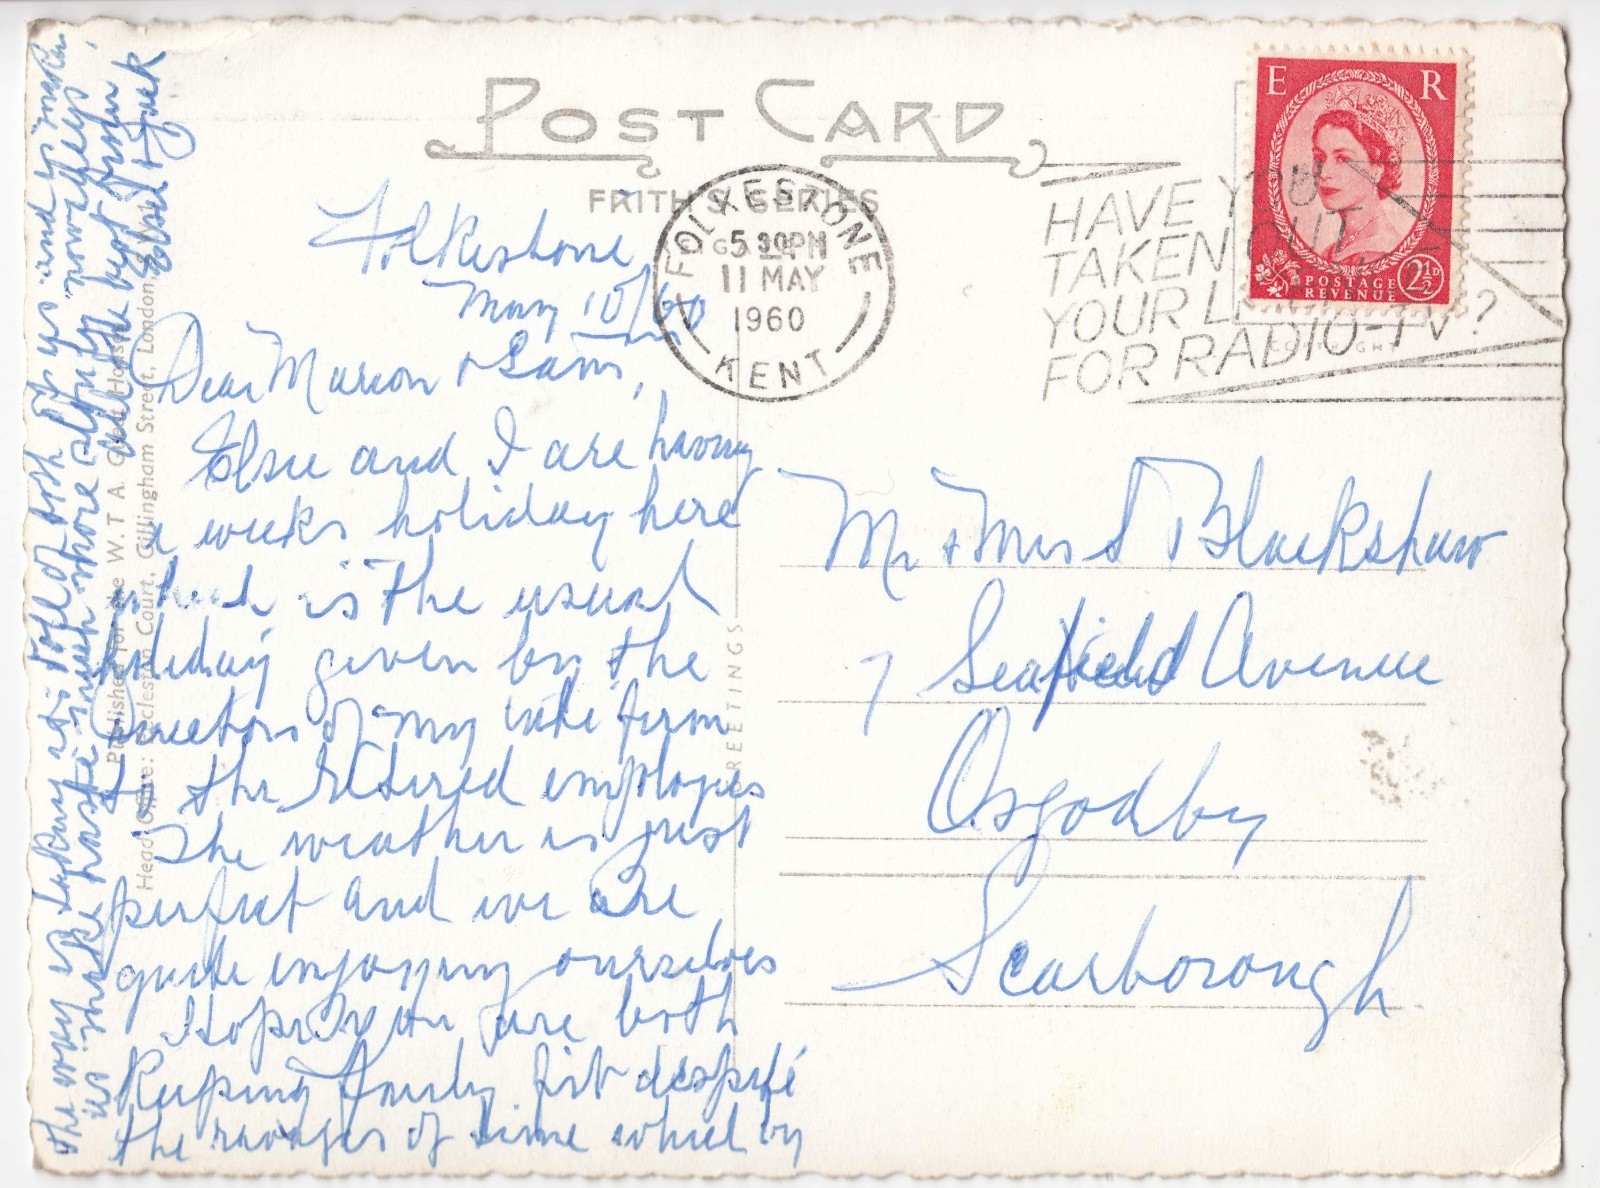 POST CARD
FRITH'S SERIES
FOLKESTONE
5 30PM
11 MAY
1960
KENT
HAVE YOU
TAKEN OUT
YOUR L
FOR RADIO-TV?
E R
POSTAGE
REVENUE
2½D
Folkestone
May 10/60
Dear Marion & Sam,
Elsie and I are having
a weeks holiday here
which is the usual
holiday given by the
Directors of my late firm
to the retired employees
The weather is just
perfect and we are
quite enjoying ourselves
Hope you are both
keeping fairly fit despite
the ravages of time which by
the way is taking its toll of both of us and makes
us make haste much more slowly nowadays,
all the best from
Elsie & Jack
Published for the W. T. A. Guest House
Head Office: Eccleston Court, Gillingham Street, London,
GREETINGS
Mr & Mrs S Blackshaw
7 Seafield Avenue
Osgodby
Scarborough